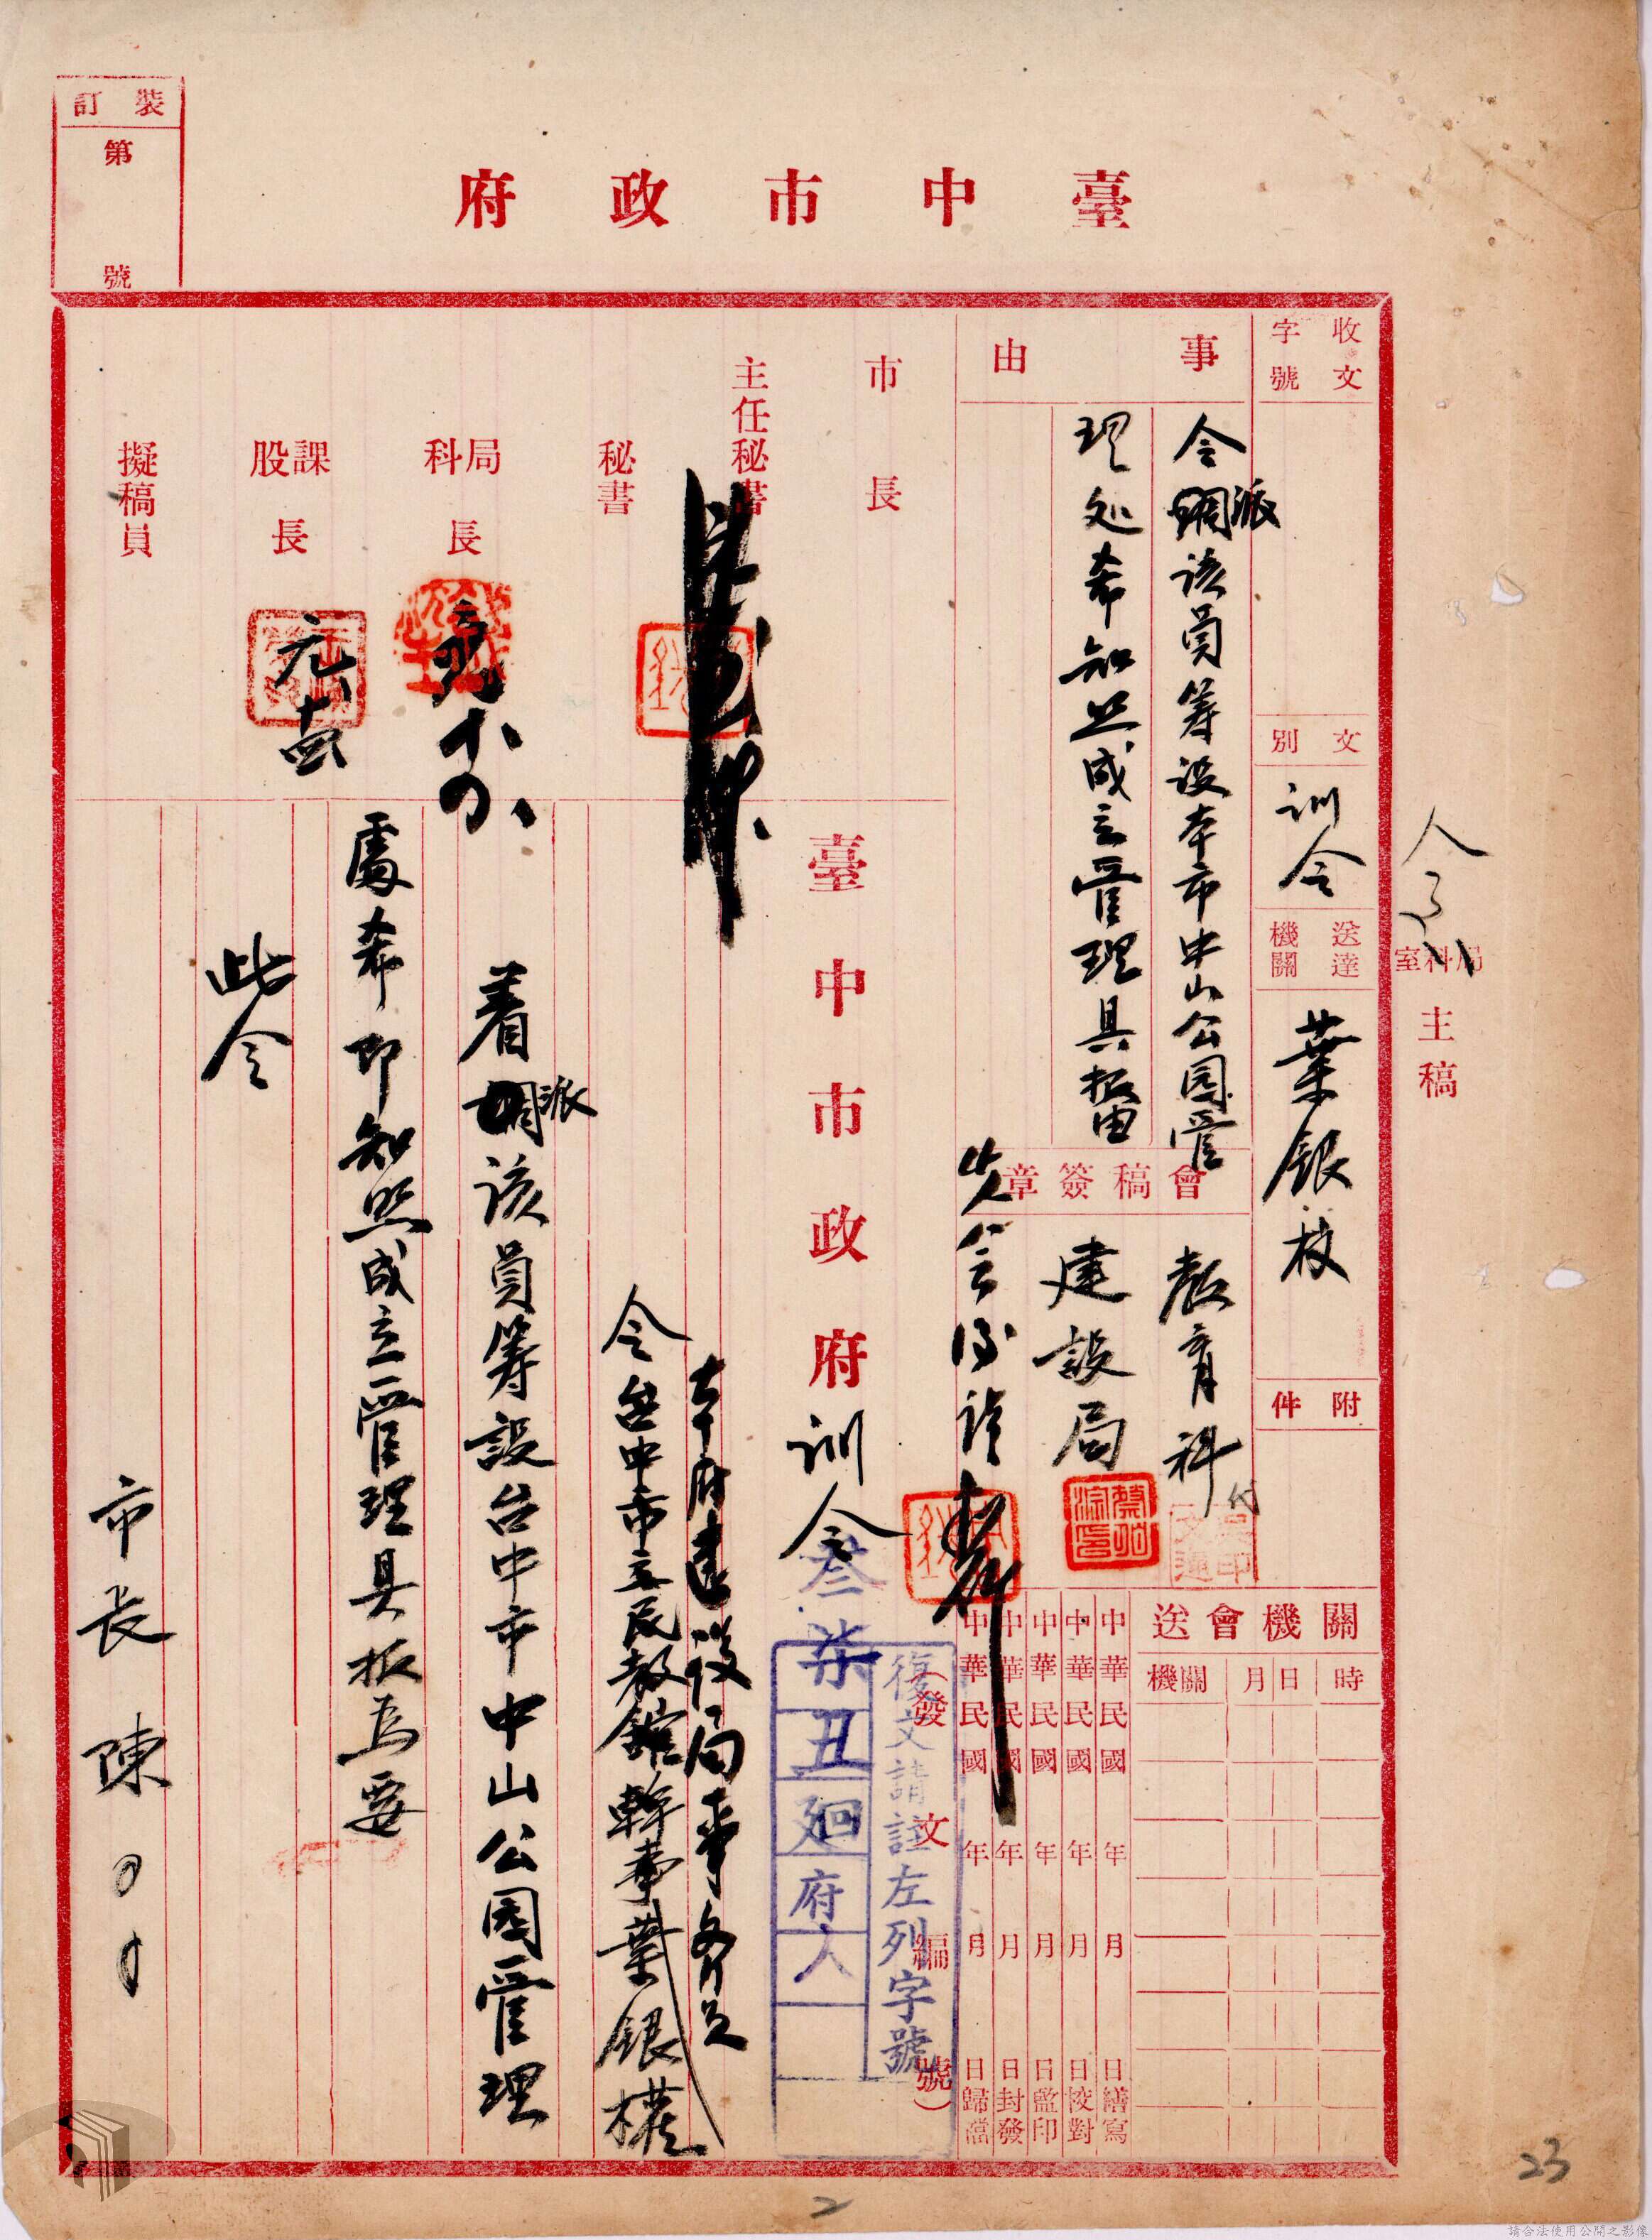 臺中市政府
裝訂
第 號
人
局科室主稿
收文字號
文別
訓令
送達機關
葉銀枝
附件
事由
令派該員籌設本市中山公園管
理处希知照成立管理具报由
會稿簽章
教育科
建設局
關機會送
時 日 月 關機
中華民國 年 月 日繕寫
中華民國 年 月 日校對
中華民國 年 月 日監印
中華民國 年 月 日封發
中華民國 年 月 日歸檔
市長
主任秘書
秘書
局科長
課股長
擬稿員
臺中市政府訓令
(發文編號)
復文請註左列字號
叁柒丑廻府人
本府建設局事務員
令台中市立民教館幹事葉銀權
着派該員籌設台中市中山公園管理
處希即知照成立管理具报為要
此令
市長陳
23
2
請合法使用公開之影像